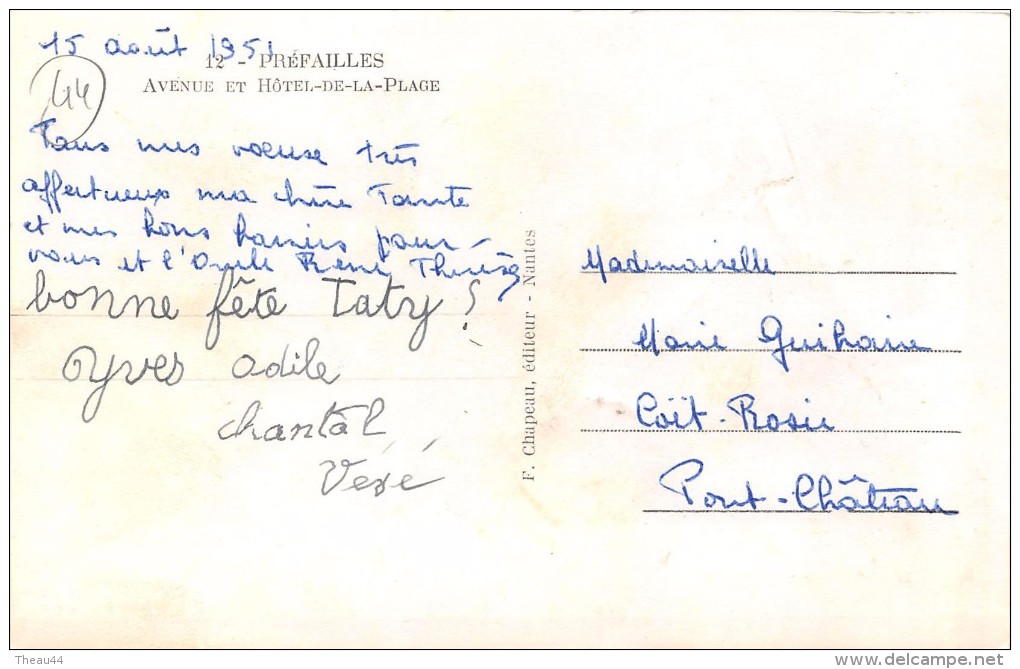 15 août 1951
12 - PRÉFAILLES
AVENUE ET HÔTEL-DE-LA-PLAGE
44
Tous mes voeux très
affectueux ma chère Tante
et mes bons baisers pour
vous et l'Oncle René Thérèse
bonne fête Taty !
Yves Odile
Chantal
Vévé
F. Chapeau, éditeur - Nantes
Mademoiselle
Marie Guihaire
Coït-Rosic
Pont-Château
Theau44
www.delcampe.net